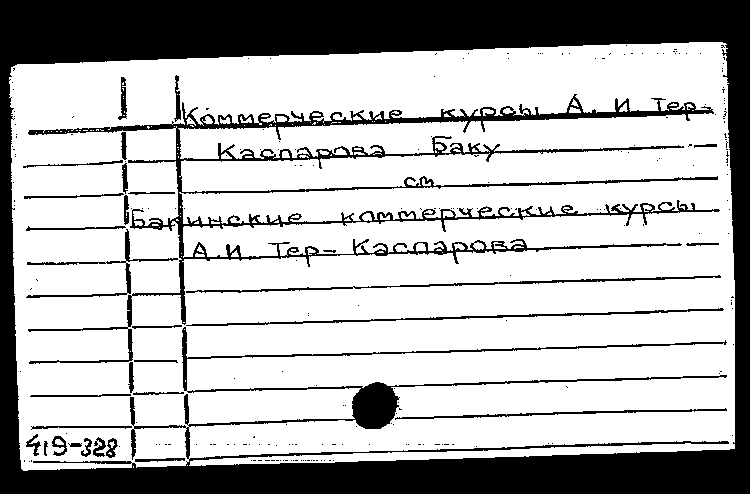 Коммерческие курсы А. И. Тер-
Каспарова Баку
см.
Бакинские коммерческие курсы
А.И. Тер-Каспарова.
419-328